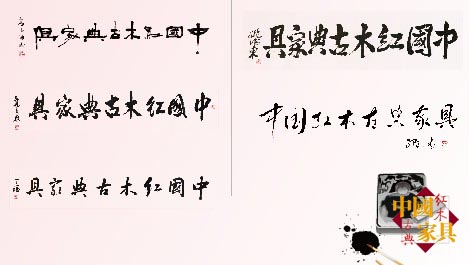 中國紅木古典家具
中國紅木古典家具
中國紅木古典家具
中國紅木古典家具
中国红木古典家具
中國
紅木
古典
家具